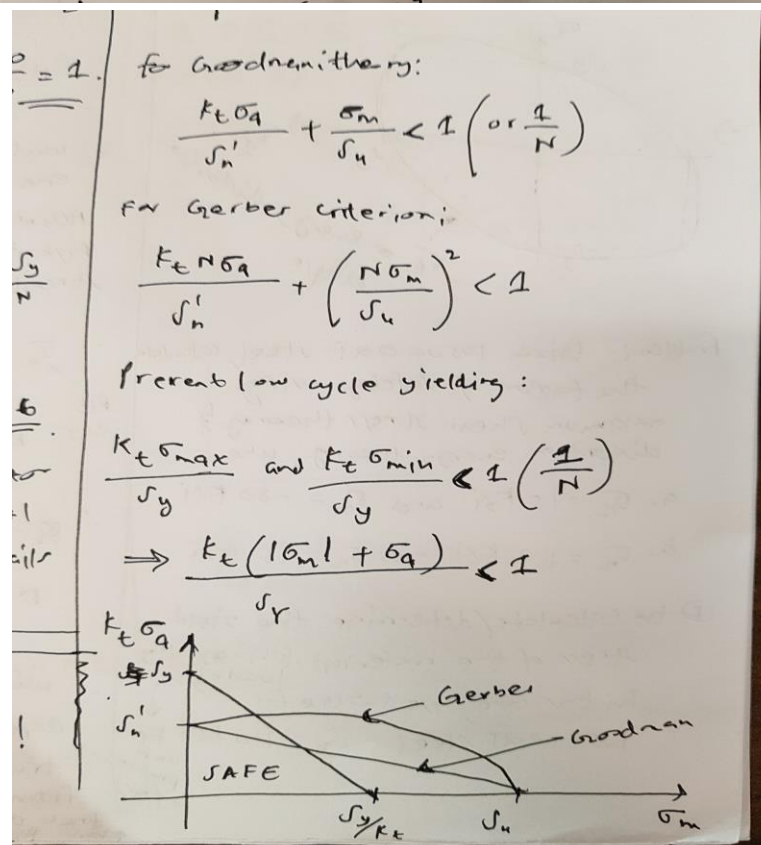 = 1.
for Goodman theory:
Kt σa / Sn' + σm / Su < 1 (or 1/N)
For Gerber criterion;
Kt Nσa / Sn' + (Nσm / Su)² < 1
Sy/N
Prevent low cycle yielding:
6
Kt σmax / Sy and Kt σmin / Sy < 1 (1/N)
⇒ Kt (|σm| + σa) / Sy < 1
Kt σa
Sy
Gerber
Sn'
Goodman
!
SAFE
Sy/Kt Su σm